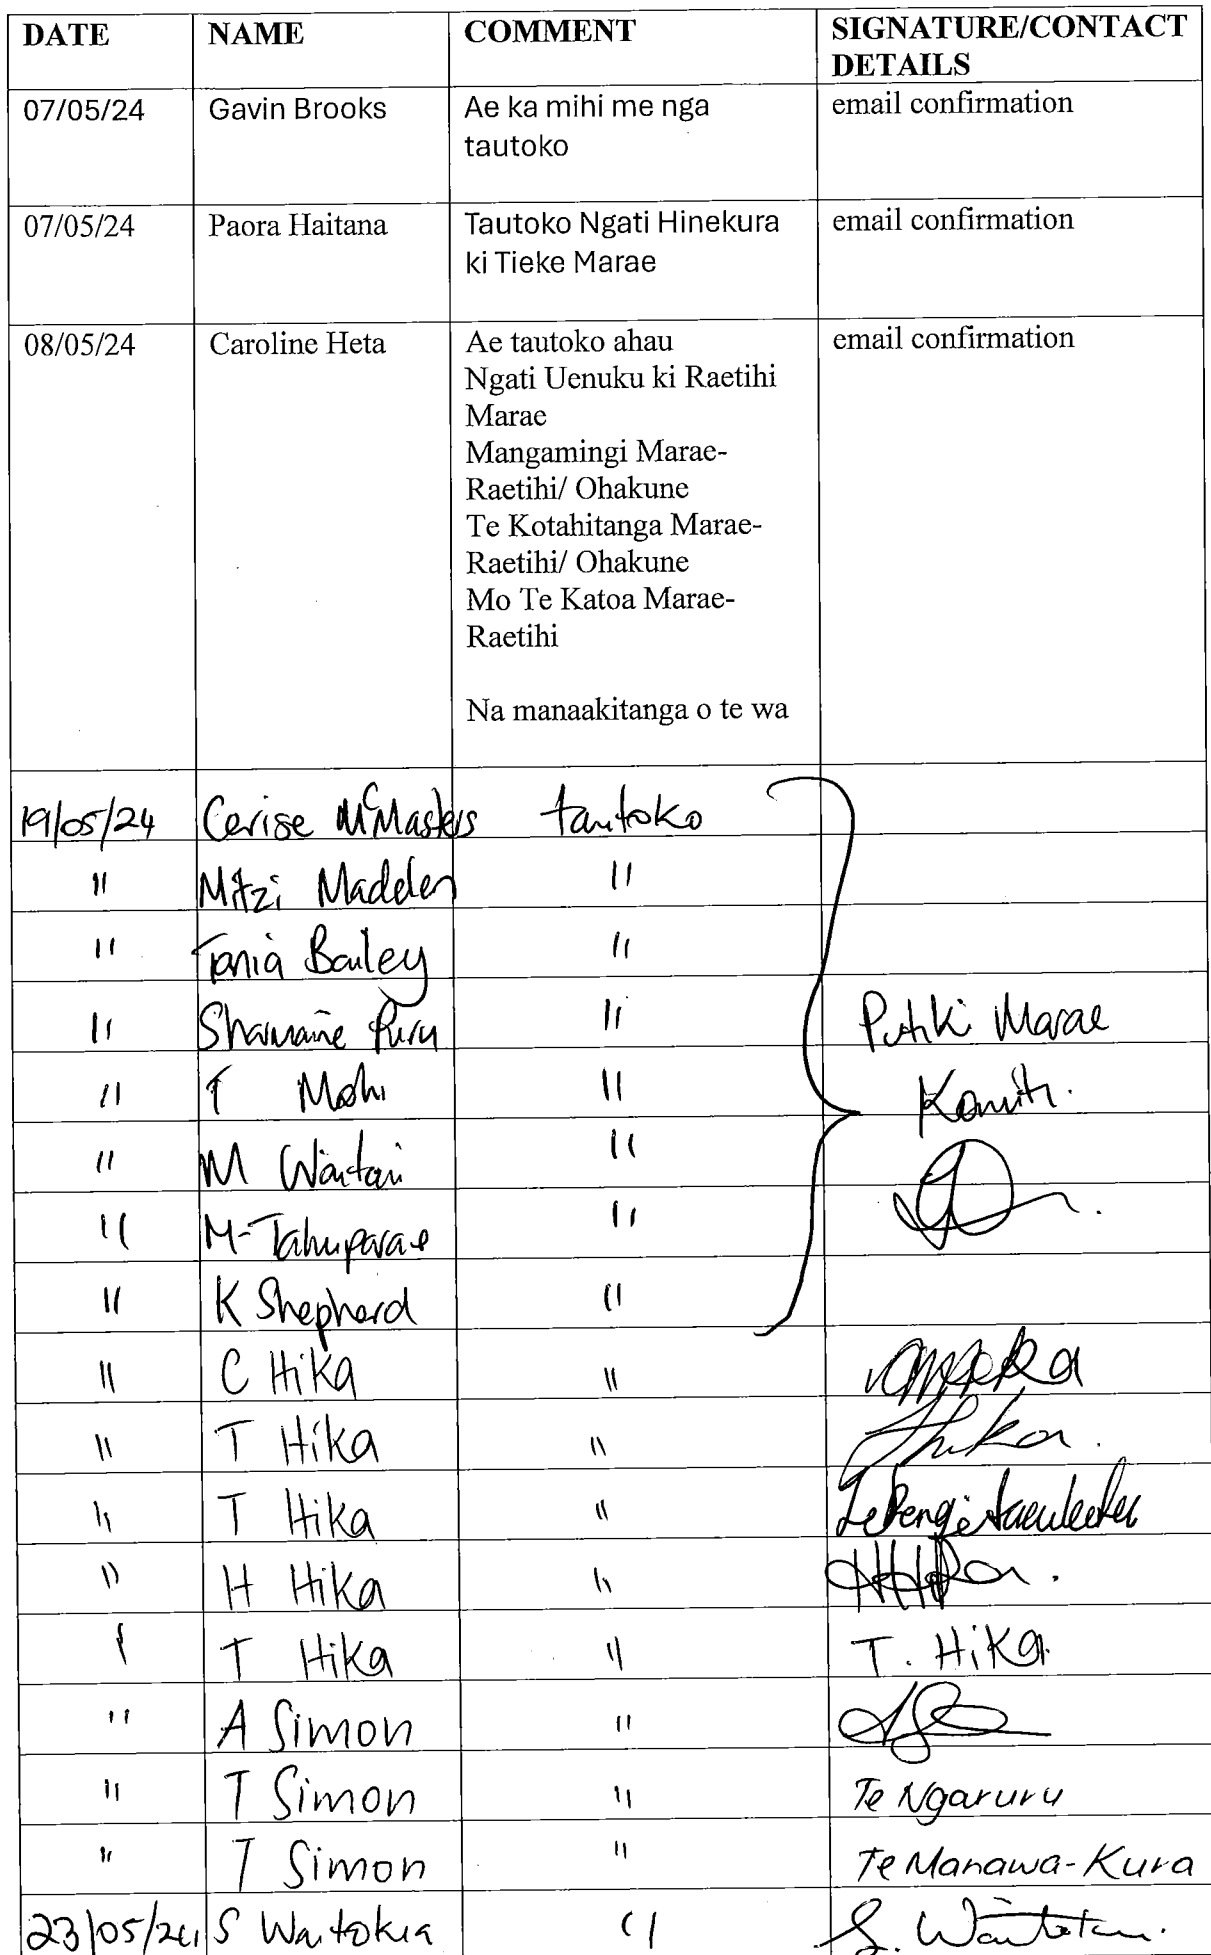 DATE NAME COMMENT SIGNATURE/CONTACT
DETAILS
07/05/24 Gavin Brooks Ae ka mihi me nga email confirmation
tautoko
07/05/24 Paora Haitana Tautoko Ngati Hinekura email confirmation
ki Tieke Marae
08/05/24 Caroline Heta Ae tautoko ahau email confirmation
Ngati Uenuku ki Raetihi
Marae
Mangamingi Marae-
Raetihi/ Ohakune
Te Kotahitanga Marae-
Raetihi/ Ohakune
Mo Te Katoa Marae-
Raetihi
Na manaakitanga o te wa
19/05/24 Cerise McMasters tautoko
" Mitzi Madden "
" Tania Bailey "
" Sharmaine Puru " Putiki Marae
" T Mohi " Komiti.
" M Waitai "
" M-Tahuparae "
" K Shepherd "
" C Hika "
" T Hika " Hika.
" T Hika "
" H Hika "
" T Hika " T. Hika.
" A Simon "
" T Simon " Te Ngaruru
" T Simon " Te Manawa-Kura
23/05/24 S Waitokia " S.